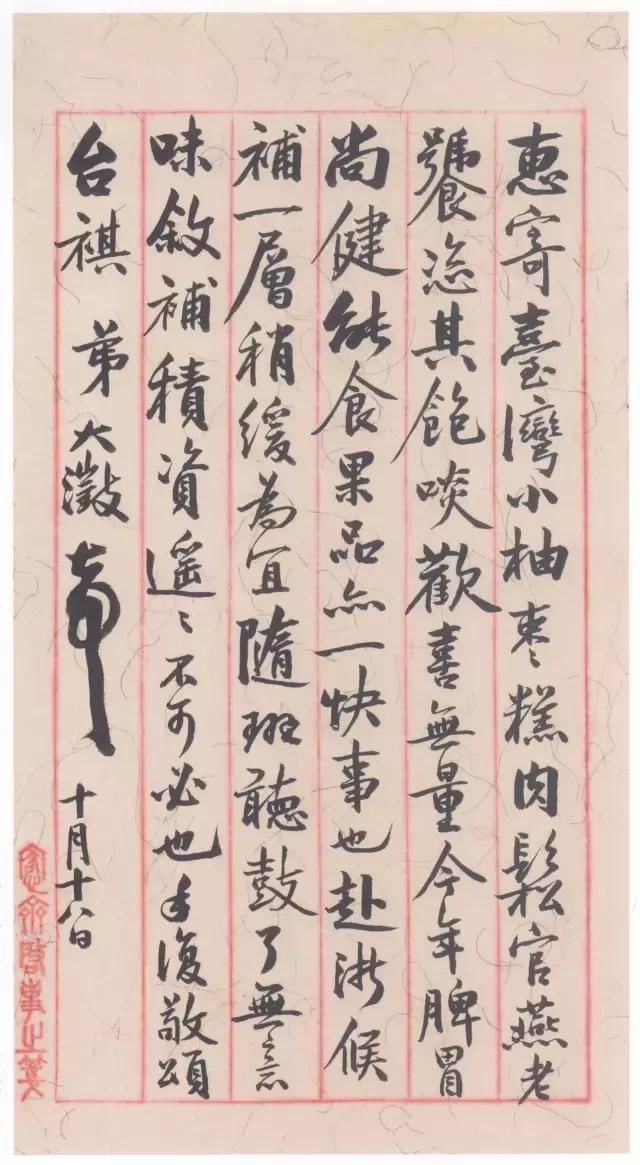 惠寄臺灣小柚枣糕肉鬆官燕老
饕恣其飽啖歡喜無量今年脾胃
尚健能食果品亦一快事也赴浙候
補一層稍緩為宜隨班聽鼓了無意
味敘補積資遥〻不可必也手復敬頌
台祺 弟大澂
十月十八日
愙齋啓事之箋